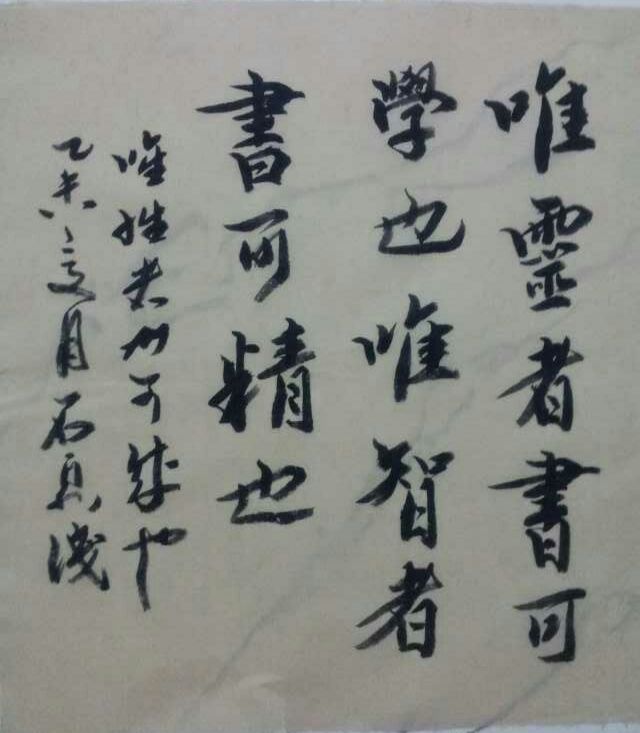 唯靈者書可
學也唯智者
書可精也
唯性者書可成也
乙未夏月石良淺